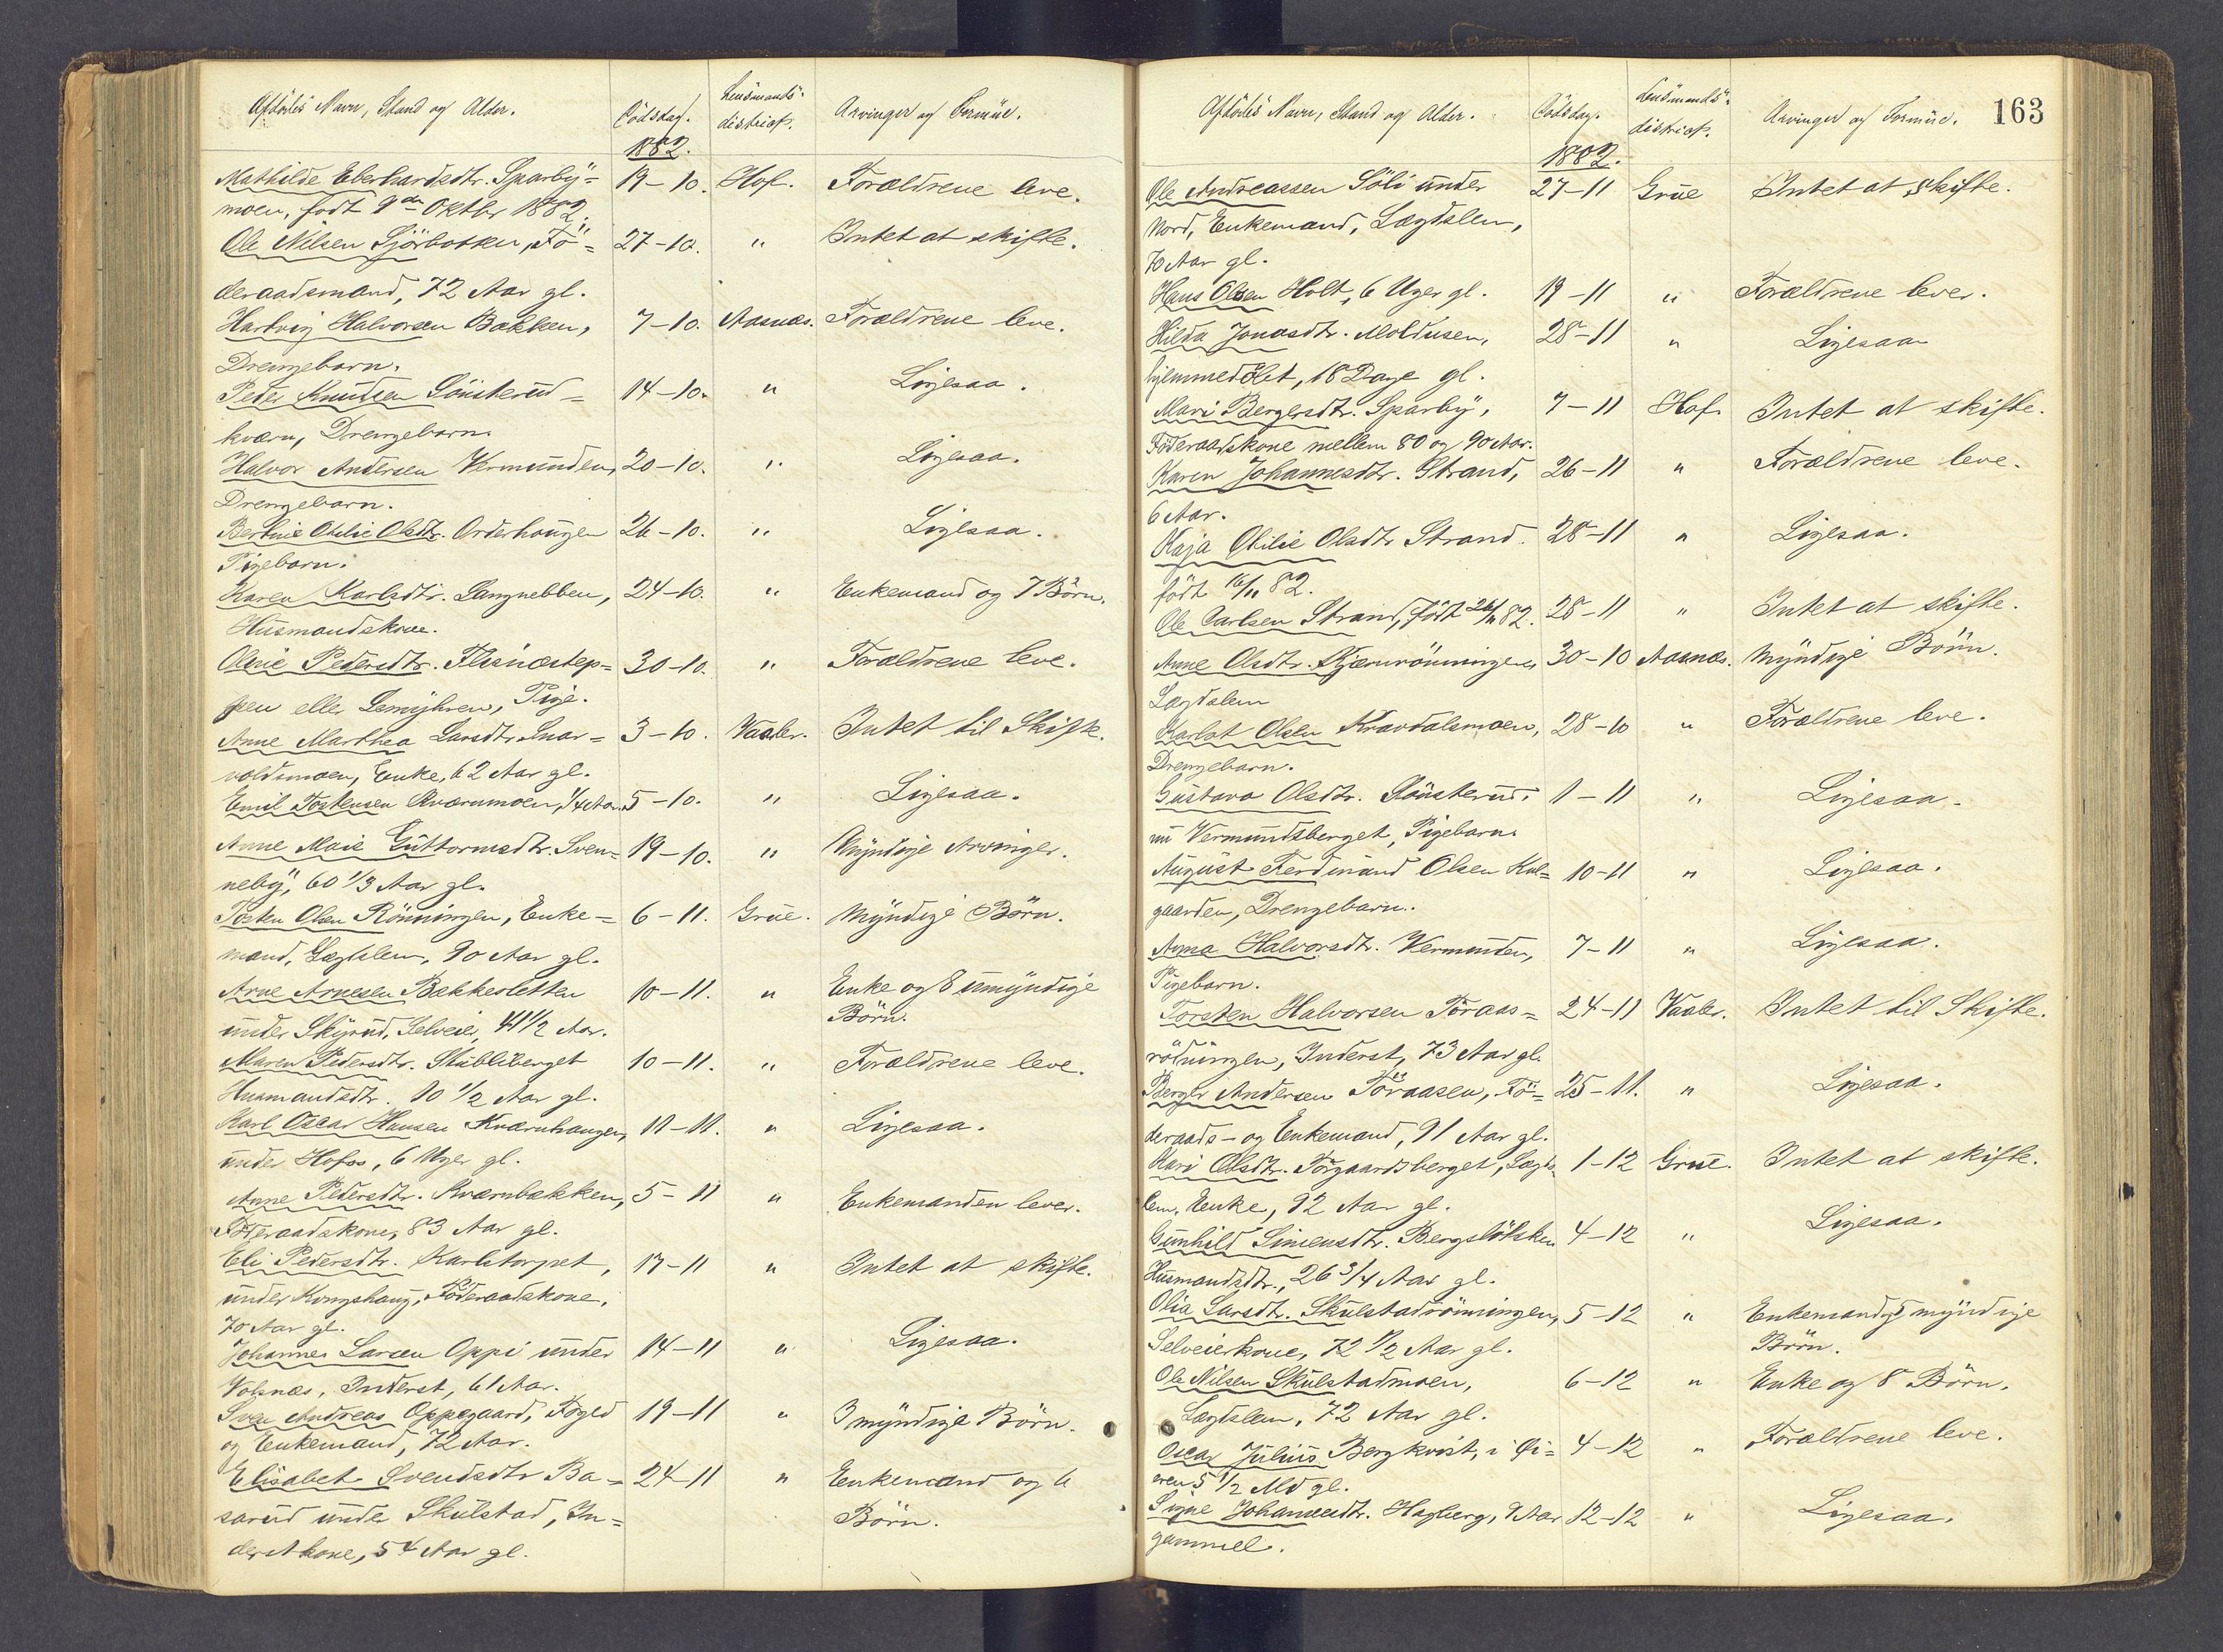 Afdødes Navn, Stand og Alder. Dödsdag. Lensmands- district. Arvinger og Formue.
1882.
Mathilde Eberhardsdtr. Sparby- 19-10. Hof. Forældrene leve.
moen, født 9de Oktbr 1882.
Ole Nilsen Sjörbotten, Fö= 27-10. " Intet at skifte.
deraadsmand, 72 Aar gl.
Hartvig Halvorsen Bakken, 7-10. Aasnæs. Forældrene leve.
Drengebarn.
Peder Knudsen Sönsterud= 14-10. " Ligesaa.
kværn, Drengebarn.
Halvor Andersen Vermunden, 20-10. " Ligesaa.
Drengebarn.
Bertine Otilie Olsdtr. Orderhaugen 26-10. " Ligesaa.
Pigebarn.
Karen Karlsdtr. Langnebben, 24-10. " Enkemand og 7 Börn.
Husmandskone.
Oline Pedersdtr. Flisnæstep= 30-10. " Forældrene leve.
pen eller Lemyhren, Pige.
Anne Marthea Larsdtr. Snar= 3-10. Vaaler. Intet til Skifte.
voldsmoen, Enke, 62 Aar gl.
Emil Tostensen Kværnmoen, 1/4 Aar. 5-10. " Ligesaa.
Anne Marie Guttormsdtr. Sven= 19-10. " Myndige Arvinger.
neby, 60 1/3 Aar gl.
Tosten Olsen Rönningen, Enke= 6-11. Grue. Myndige Börn.
mand, Lægdslem, 90 Aar gl.
Arne Arnesen Bækkesletten 10-11. " Enke og 8 umyndige
under Skyrud, Selveier, 41 1/2 Aar. Börn.
Maren Pedersdtr. Stubliberget 10-11. " Forældrene leve.
Husmandsdtr. 10 1/2 Aar gl.
Karl Oscar Hansen Kværnhaugen, 11-11. " Ligesaa.
under Hofos, 6 Uger gl.
Anne Pedersdtr. Kværnbakken, 5-11 " Enkemanden lever.
Föderaadskone, 83 Aar gl.
Eli Pedersdtr. Karlstorpet, 17-11 " Intet at skifte.
under Kongshaug, Föderaadskone,
70 Aar gl.
Johannes Larsen Oppi under 14-11 " Ligesaa.
Volsnæs, Inderst, 61 Aar.
Sven Andreas Oppegaard, Foged 19-11 " 3 myndige Börn.
og Enkemand, 72 Aar.
Elisabet Svendsdtr Ba= 24-11 " Enkemand og 6
sarud under Skulstad, In= Börn.
derstkone, 54 Aar gl.
163
Afdødes Navn, Stand og Alder. Dödsdag. Lensmands- district. Arvinger og Formue.
1882.
Ole Andreassen Söli under 27-11 Grue Intet at skifte.
Nord, Enkemand, Lægdslem,
70 Aar gl.
Hans Olsen Holt, 6 Uger gl. 19-11 " Forældrene lever.
Hilda Jonasdtr. Moldusen, 28-11 " Ligesaa
hjemmedöbt, 18 Dage gl.
Mari Bergersdtr. Sparby, 7-11 Hof. Intet at skifte.
Föderaadskone mellem 80 og 90 Aar.
Karen Johannesdtr. Strand, 26-11 " Forældrene leve.
6 Aar.
Kaja Otilie Olsdtr Strand. 28-11 " Ligesaa.
född 16/11 82.
Ole Carlsen Strand, född 26/11 82. 28-11 " Intet at skifte.
Anne Olsdtr. Kjærnrönningen, 30-10 Aasnæs. Myndige Börn.
Lægdslem
Karlot Olsen Kravdalsmoen, 28-10 " Forældrene leve.
Drengebarn.
Gustava Olsdtr. Sönsterud, 1-11 " Ligesaa.
nu Vermundsberget, Pigebarn.
August Ferdinand Olsen Kul= 10-11 " Ligesaa.
gaarden, Drengebarn.
Anna Halvorsdtr. Vermunden, 7-11 " Ligesaa.
Pigebarn.
Torsten Halvorsen Töraas= 24-11 Vaaler. Intet til Skifte.
rödningen, Inderst, 73 Aar gl.
Berger Andersen Töraasen, Fö= 25-11. " Ligesaa.
deraads- og Enkemand, 91 Aar gl.
Kari Olsdtr. Torgaardsberget, Lægds= 1-12 Grue. Intet at skifte.
lem, Enke, 92 Aar gl.
Gunhild Simensdtr. Bergslökken 4-12 " Ligesaa.
Husmandsdtr., 26 3/4 Aar gl.
Olia Larsdtr. Skulstadrönningen, 5-12 " Enkemand og 5 myndige
Selveierkone, 72 1/2 Aar gl. Börn.
Ole Nilsen Skulstadmoen, 6-12 " Enke og 8 Börn.
Lægdslem, 72 Aar gl.
Oscar Julius Bergkvist, i Öi= 4-12 " Forældrene leve.
eren 5 1/2 Md gl.
Signe Johansendtr. Hagberg, 9 Aar 12-12 " Ligesaa.
gammel.